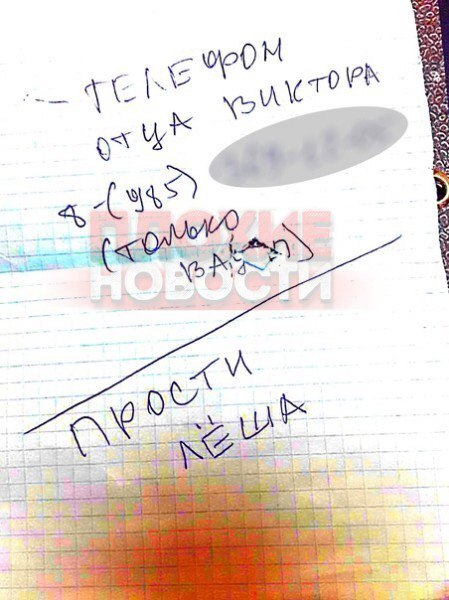 - ТЕЛЕФОН
ОТЦА ВИКТОРА
8-(985)
(ТОЛЬКО
ПЛОХИЕ
НОВОСТИ
ПРОСТИ
ЛЁША